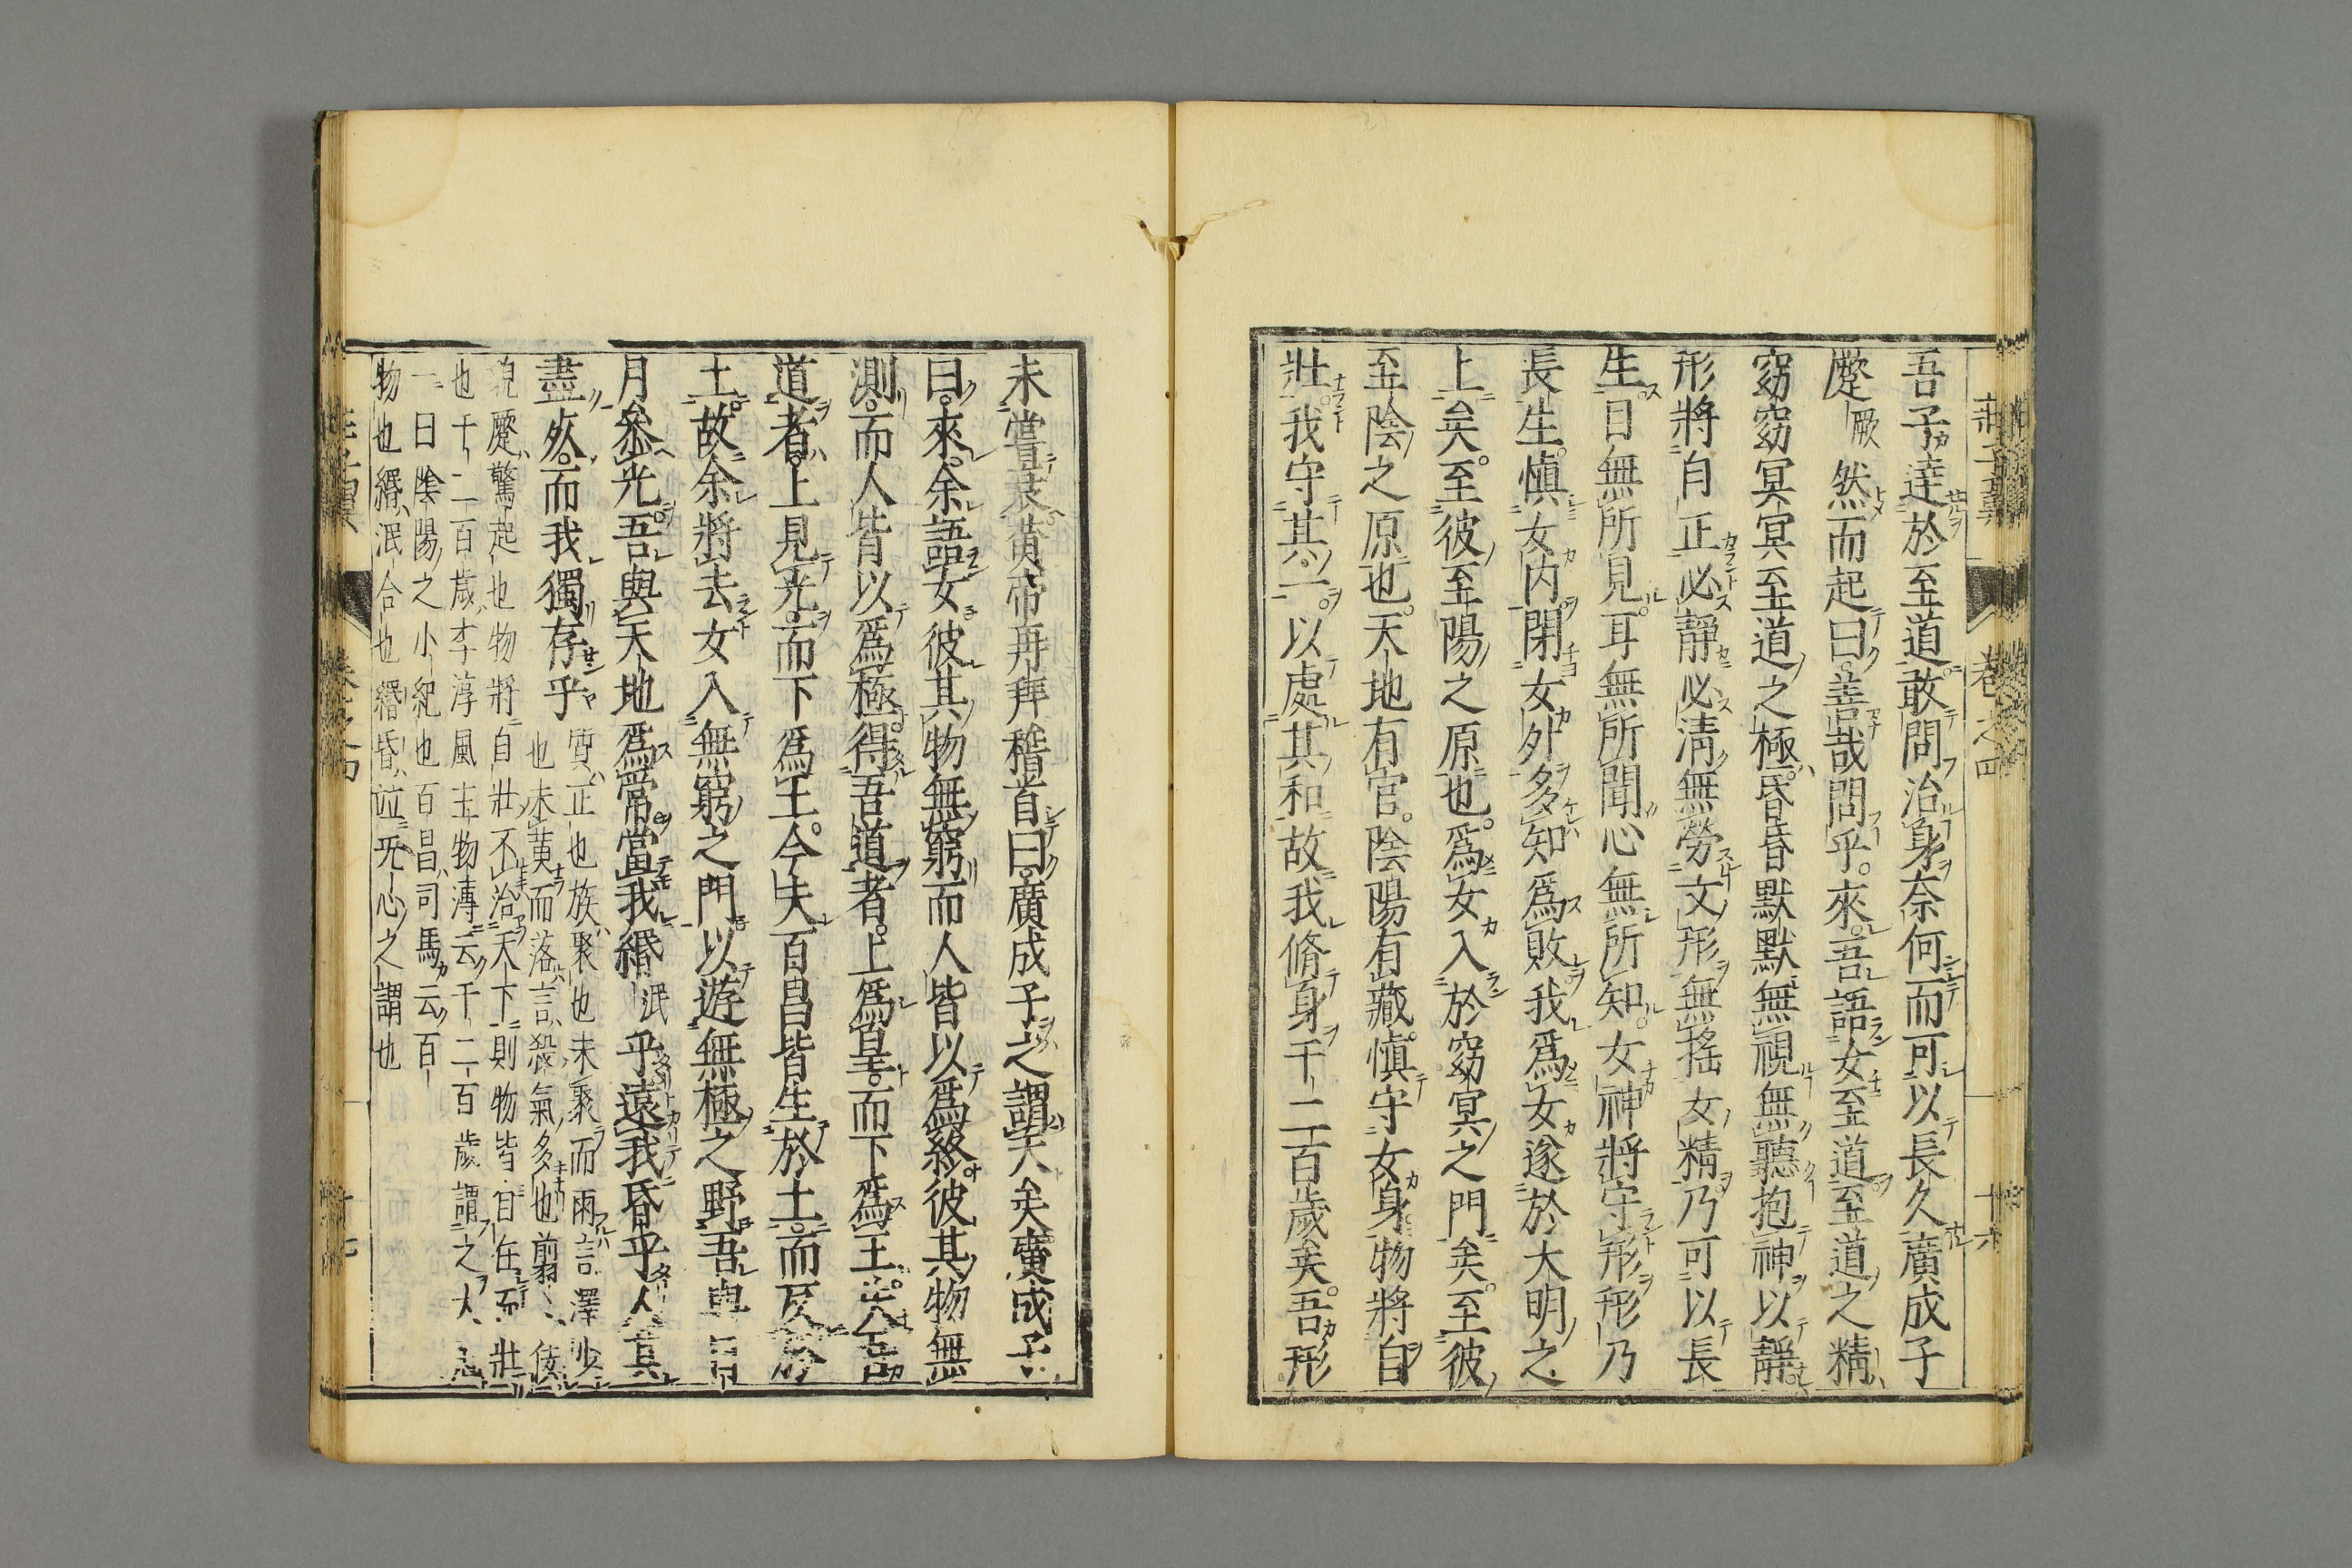 吾子達於至道敢問治身奈何而可以長久廣成子
蹷厥然而起曰善哉問乎來吾語女至道至道之精
窈窈冥冥至道之極昏昏默默無視無聽抱神以靜
形將自正必靜必清無勞女形無揺女精乃可以長
生目無所見耳無所聞心無所知女神將守形形乃
長生愼女内閉女外多知爲敗我爲女遂於大明之
上矣至彼至陽之原也爲女入於窈冥之門矣至彼
至陰之原也天地有官陰陽有藏愼守女身物將自
壯我守其一以處其和故我脩身千二百歲矣吾形
未嘗衰黃帝再拜稽首曰廣成子之謂天矣廣成子
曰來余語女彼其物無窮而人皆以爲終彼其物無
測而人皆以爲極得吾道者上爲皇而下爲王失吾
道者上見光而下爲土今夫百昌皆生於土而反於
土故余將去女入無窮之門以遊無極之野吾與日
月參光吾與天地爲常當我緡泯乎遠我昏乎人其
盡死而我獨存乎
質正也族聚也未聚而雨言澤少
也未黃而落言殺氣多也翦翦佞
貌蹷驚起也物將自壯不治天下則物皆自在而壯
也千二百歲李淳風主物溥云千二百歲謂之大
一曰陰陽之小紀也百昌司馬云百
物也緡泯合也緡昏竝无心之謂也